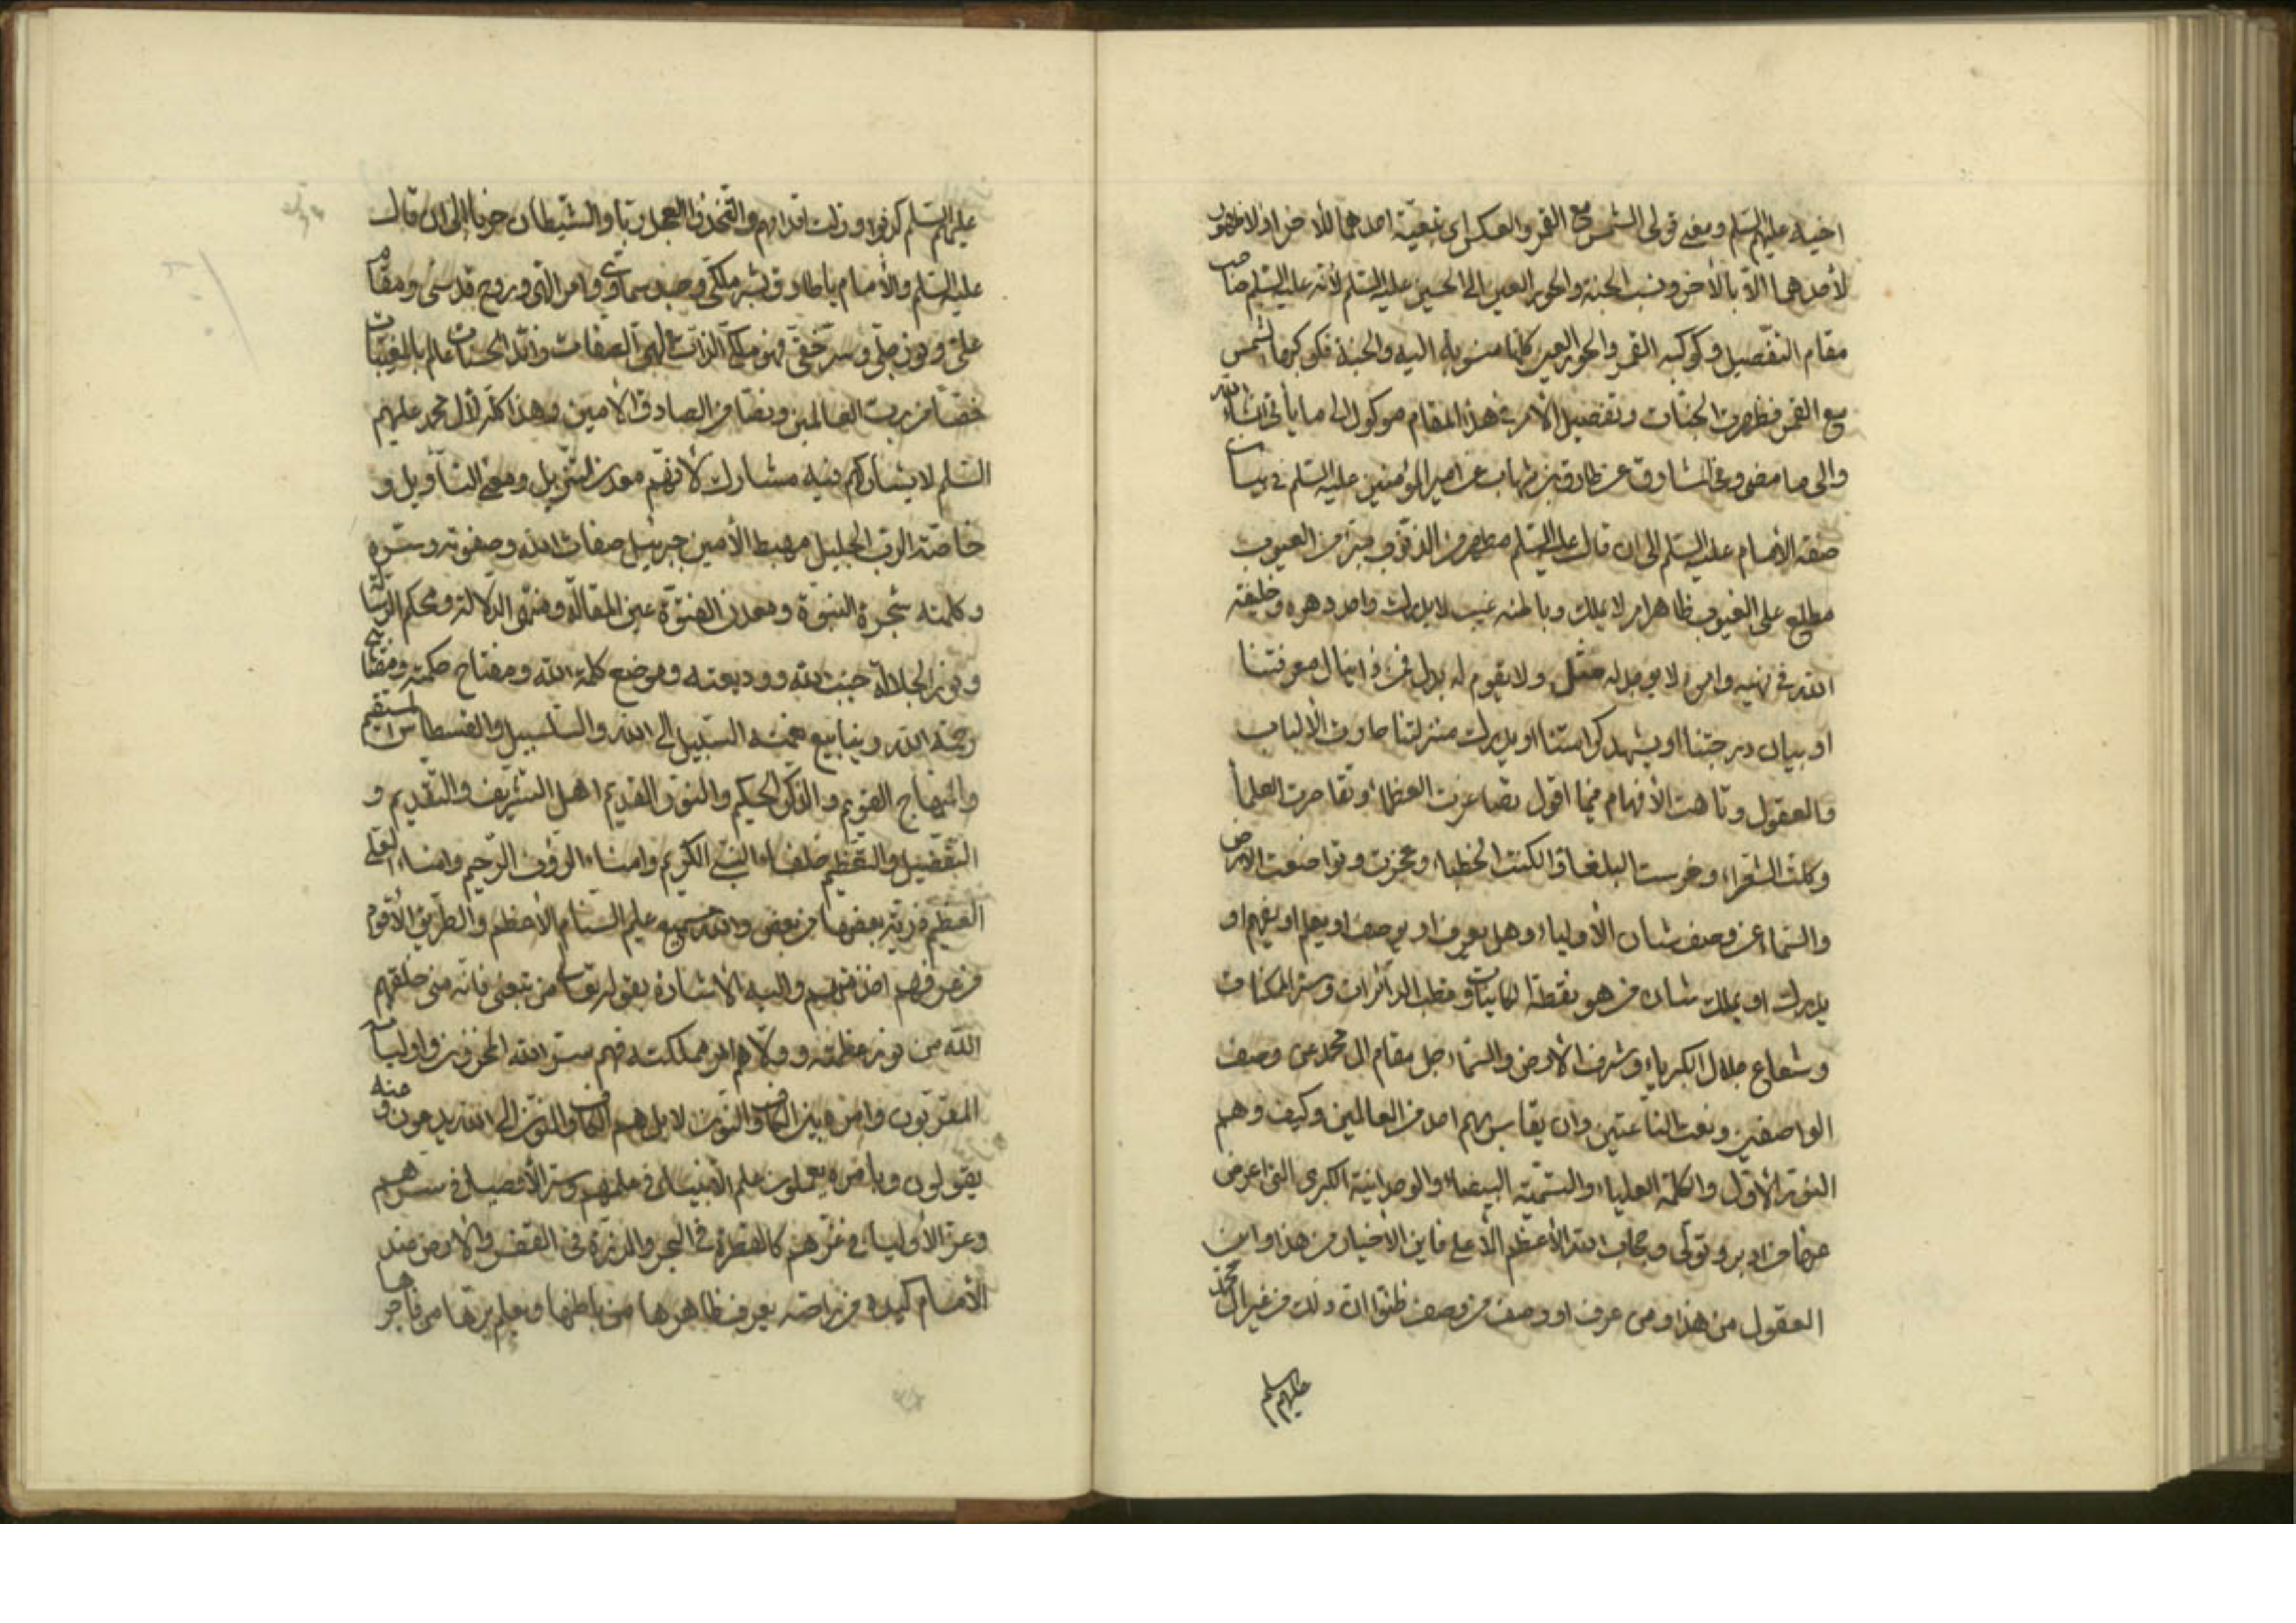 اخيه عليهم السّلم ومعنى قولى الشمس مع القمر والعكس اى تبعيّة احدهما للآخر اذ لا ظهور
لأحدهما الّا بالآخر ونسب الجنة والحور العين الى الحسين عليه السّلم لأنّه عليه السّلم صاحب
مقام التفصيل وكوكبه القمر والحور العين كلها منسوبة اليه والجنة فكوكبها الشمس
مع القمر فظهرت الجنّات وتفصيل الأمر فى هذا المقام موكول الى ما يأتى انشاء الله
والى ما مضى وفى المشارق عن طارق بن شهاب عن امير المؤمنين عليه السّلم فى بيان
صفة الأمام عليه السّلم الى ان قال عليه السّلم مطهر من الذنوب مبرّء من العيوب
مطلع على الغيوب ظاهره امر لا يملك وباطنه غيب لا يدرك واحد دهره وخليفة
الله فى نهيه وامره لا يوجد له مثل ولا يقوم له بدل فمن ذا ينال معرفتنا
او ينال درجتنا او يشهد كرامتنا او يدرك منزلتنا حارت الألباب
والعقول وتاهت الأفهام فيما اقول تصاغرت العظماء وتقاصرت العلماء
وكلّت الشعراء وخرست البلغاء والكنت الخطباء وعجزت وتواضعت الأرض
والسّماء عن وصف شان الأولياء وهل يعرف او يوصف او يعلم او يفهم او
يدرك او يملك شان من هو نقطة الكاينات وقطب الدائرات وسرّ الممكنات
وشعاع جلال الكبرياء وشرف الأرض والسّماء جلّ مقام ال محمد عن وصف
الواصفين ونعت الناعتين وان يقاس بهم احد من العالمين وكيف وهم
النور الأوّل والكلمة العلياء والتسمية البيضاء والوحدانية الكبرى التى اعرض
عنها من ادبر وتولّى وحجاب الله الأعظم الأعلى فاين الأخيار من هذا واين
العقول من هذا ومن عرف او وصف من وصف ظنّوا ان ذلك من غير ال محمّد
عليهم السلم
عليهم السّلم كذبوا وزلّت اقدامهم واتّخذوا العجل ربّا والشّيطان حزبا الى ان قال
عليه السّلم والأمام يا طارق بشر ملكى وجسد سماوى وامر الهى وروح قدسى ومقام
علىّ ونور جلىّ وسرّ خفىّ فهو ملكىّ الذات الهىّ الصفات زائد الحسنات عالم بالمغيبات
خصّا من ربّ العالمين ونصّا من الصادق الأمين وهذا كلّه لأل محمد عليهم
السّلم لا يشاركهم فيه مشارك لأنّهم معدن التنزيل ومعنى التأويل و
خاصّة الربّ الجليل مهبط الأمين جبرئيل صفات الله وصفوته وسرّه
وكلمته شجرة النبوّة ومعدن الفتوّة عين المقالة ومنتهى الدلالة ومحكم الرّسالة
ونور الجلالة جنب الله ووديعته وموضع كلمة الله ومفتاح حكمته ومصابيح
رحمة الله وينابيع نعمته السّبيل الى الله والسّلسبيل والقسطاس المستقيم
والمنهاج القويم والذكر الحكيم والنور القديم اهل التشريف والتقديم و
التفضيل والتعظيم خلفاء النبىّ الكريم وامناء الرؤف الرّحيم وامناء العلىّ
العظيم ذرّية بعضها من بعض والله سميع عليم السّنام الأعظم والطريق الأقوم
من عرفهم اخذ عنهم واليه الأشارة بقوله تعالى من تبعنى فانّه منى خلقهم
الله من نور عظمته وولّاهم امر مملكته فهم سرّ الله المخزون واولياءه
المقرّبون وامره بين الكاف والنون لا بل هم الكاف والنون الى الله يدعون وعنه
يقولون وبامره يعملون علم الأنبياء فى علمهم وسرّ الأوصياء فى سرّهم
وعزّ الأولياء فى عزّهم كالقطرة فى البحر والذرّة فى القفر والأرض عند
الأمام كيده من راحته يعرف ظاهرها من باطنها ويعلم برّها من فاجرها